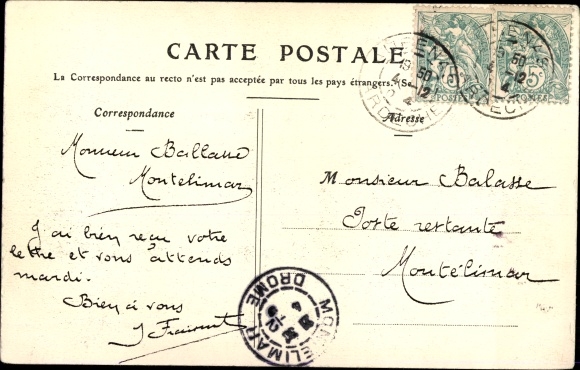 CARTE POSTALE
La Correspondance au recto n'est pas acceptée par tous les pays étrangers. (Se
Correspondance
Adresse
Monsieur Ballasse
Montelimar
J'ai bien reçu votre
lettre et vous attends
mardi.
Bien à vous
Monsieur Balasse
Poste restante
Montélimar
POSTES
5c
POSTES
MONTELIMAR
DROME